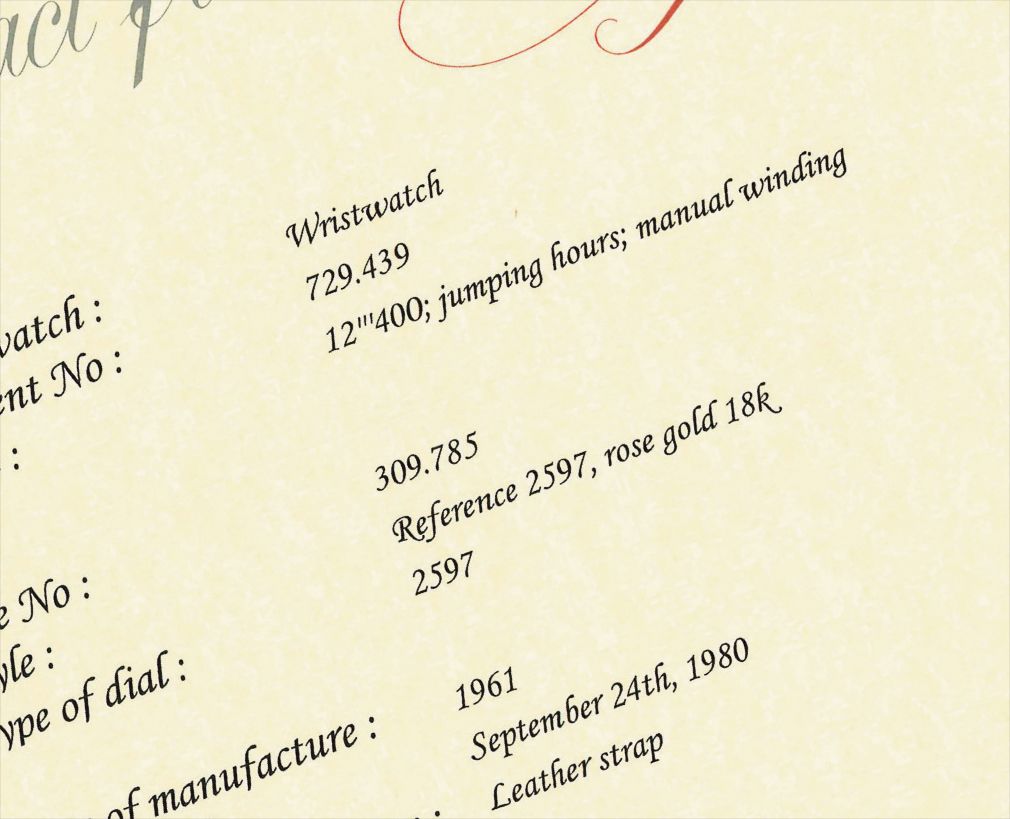 Wristwatch
729.439
12'''400; jumping hours; manual winding
309.785
Reference 2597, rose gold 18k
2597
1961
September 24th, 1980
Leather strap
No :
of dial :
of manufacture :